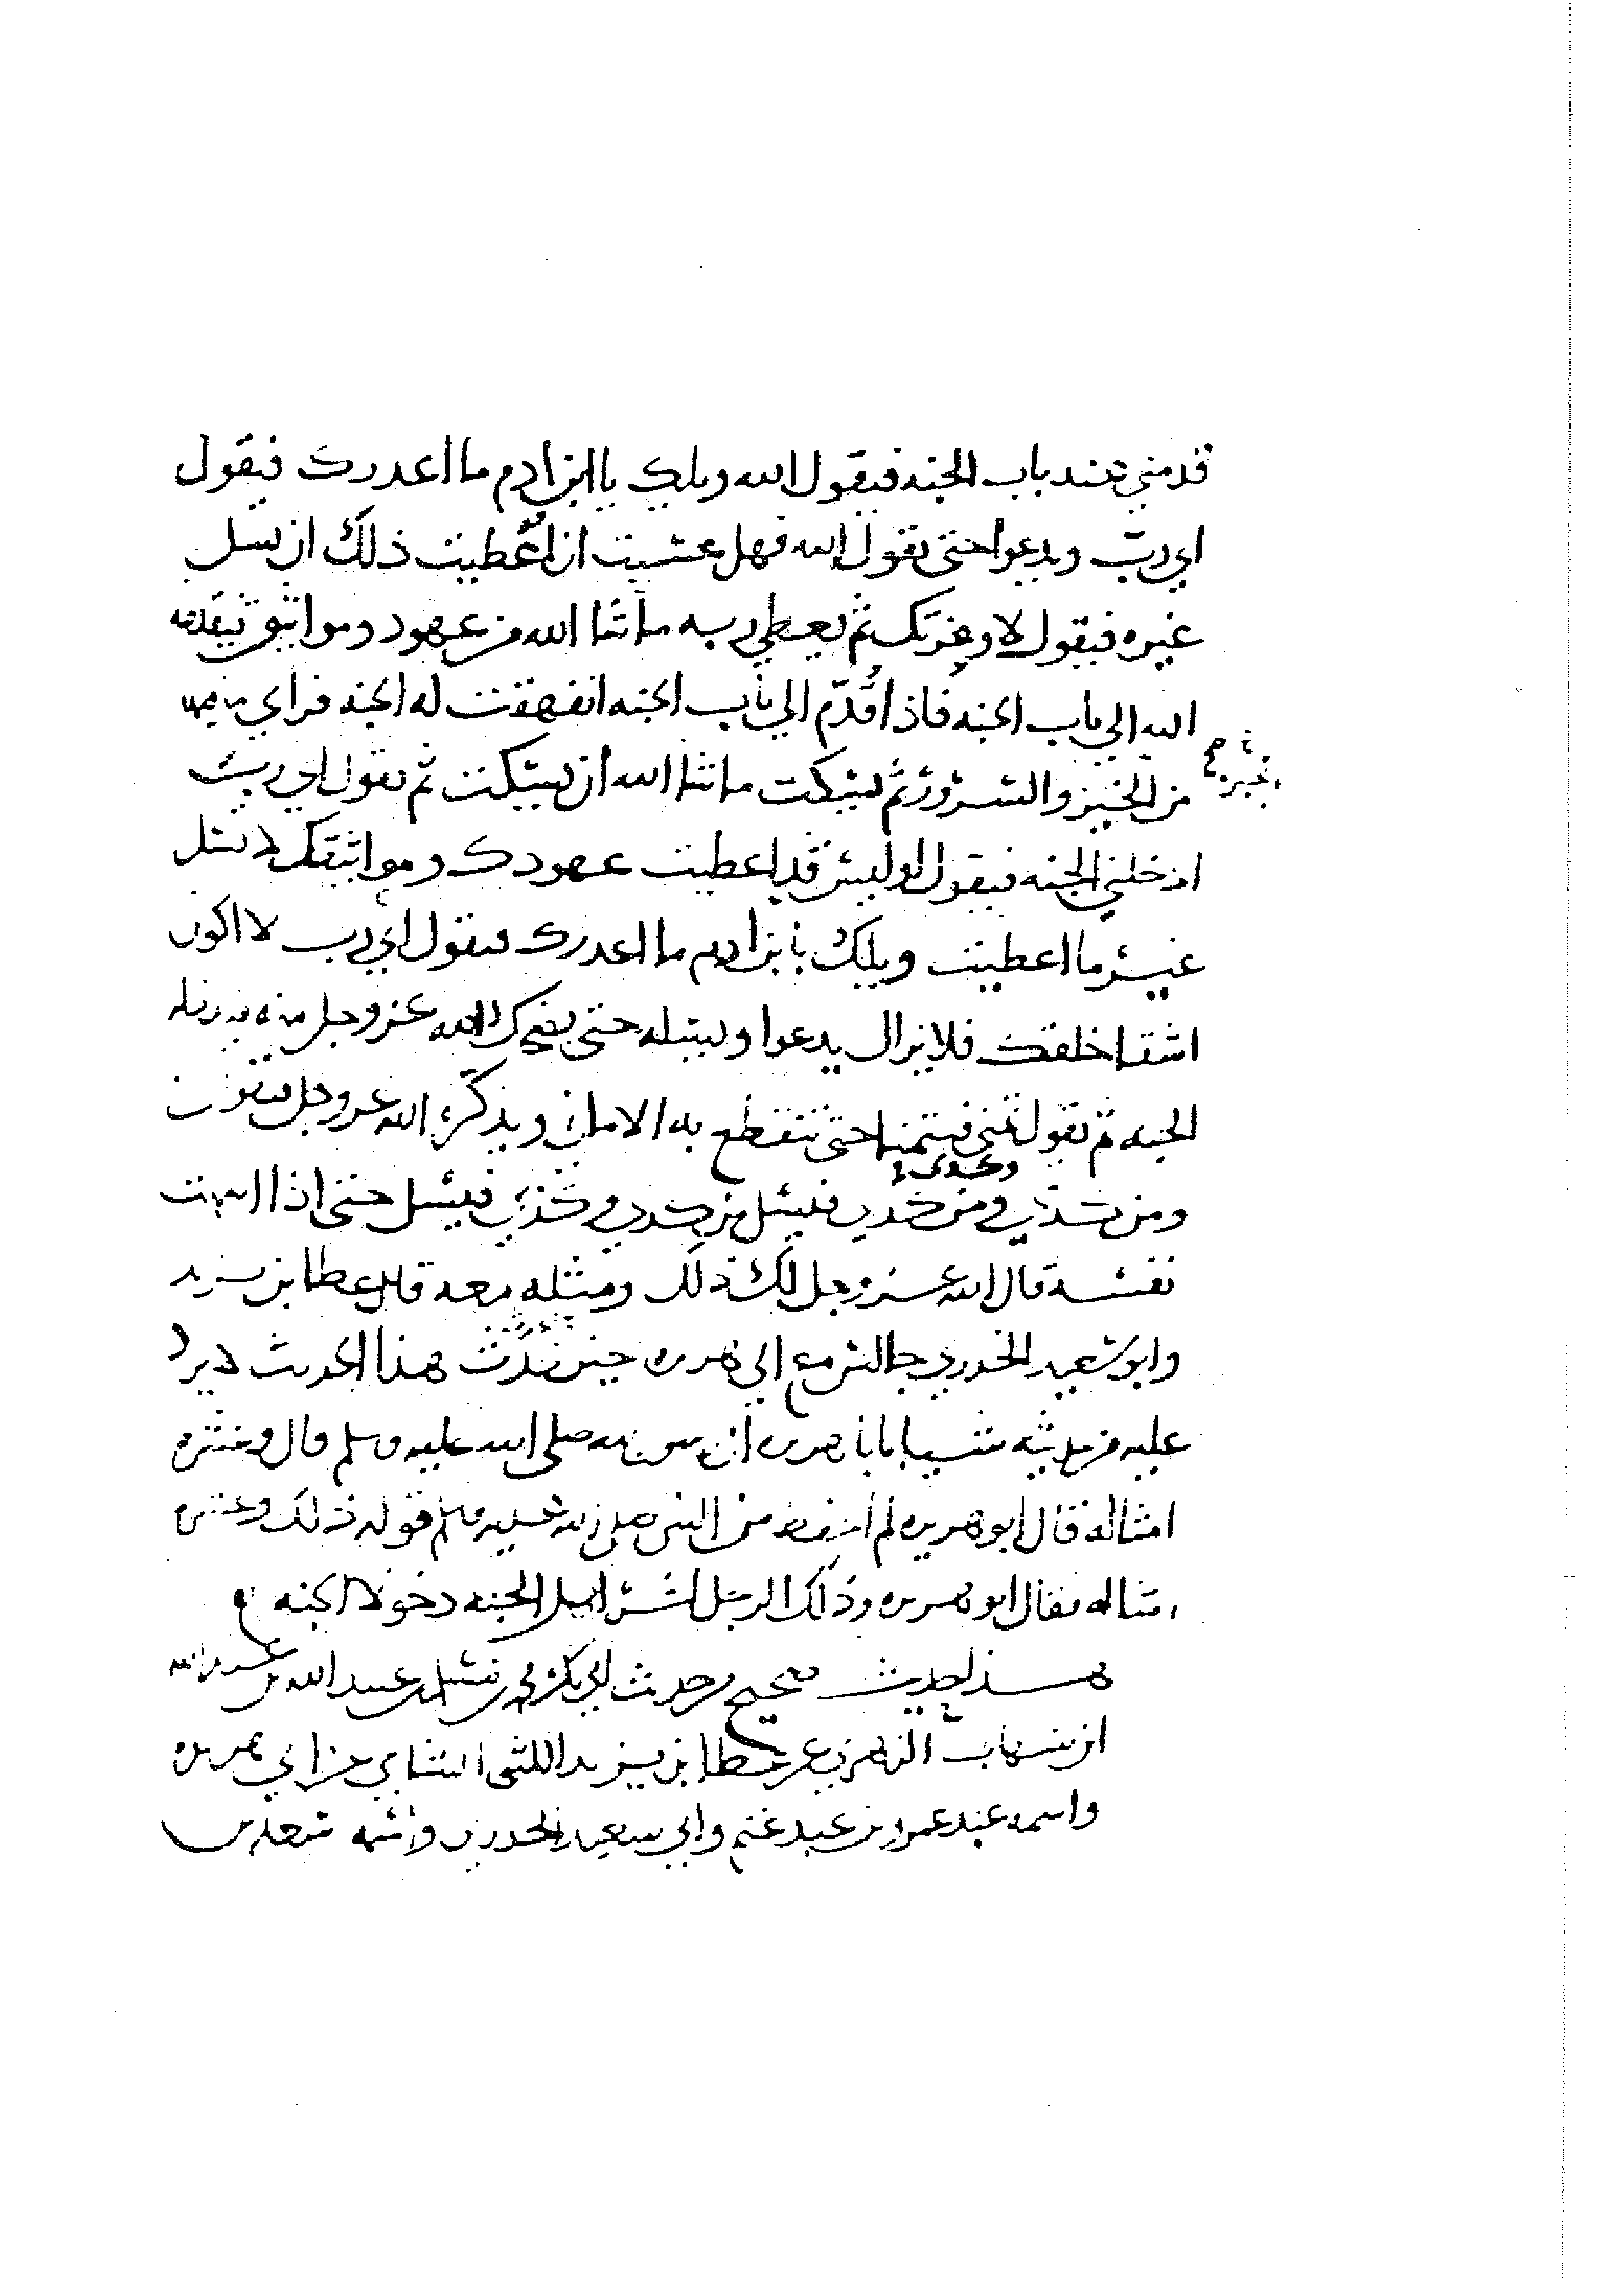 قدمني عند باب الجنه فيقول الله ويلك يا ابن ادم ما اغدرك فيقول
اي رب ويدعوا حتى يقول الله فهل عسيت ان اعطيت ذلك ان تسل
غيره فيقول لا وعزتك ثم يعطي ربه ما شا الله من عهود ومواثيق فيقدمه
الله الى باب الجنه فاذا قدم الي باب الجنه انفهقت له الجنه فراي ما فيها
من الخير والسرور ثم يسكت ما شا الله ان يسكت ثم يقول اي رب
ادخلني الجنه فيقول اوليس قد اعطيت عهودك ومواثيقك لا تسل
غير ما اعطيت ويلك يابن ادم ما اغدرك فيقول اي رب لا اكون
اشقا خلقك فلا يزال يدعوا ويسله حتى يضحك الله عز وجل منه
الجنه ثم يقول تمنى فيتمنا حتى تنقطع به الاماني ويذكره الله عز وجل فيقول
ومن كذي ومن كذي فيسل من كذي وكذي فيسل حتى اذا انتهت
نفسه قال الله عز وجل لك ذلك ومثله معه قال عطا بن يزيد
وابو سعيد الخدري جالس مع ابي هريره حين حدث بهذا الحديث لا يرد
عليه من حديثه شيا يابا هريره ان رسول الله صلى الله عليه وسلم قال وعشره
امثاله قال ابو هريره لم احفظ من النبي صلى الله عليه وسلم قوله ذلك وعشره
امثاله فقال ابو هريره وذلك الرجل اخر اهل الجنه دخولا الجنه
هذا حديث صحيح من حديث ابي بكر محمد بن مسلم بن عبيد الله بن عبد الله
ابن شهاب الزهري عن عطا بن يزيد الليثي الشامي عن ابي هريره
واسمه عبد عمرو بن عبد غنم وابي سعيد الخدري واسمه سعد بن